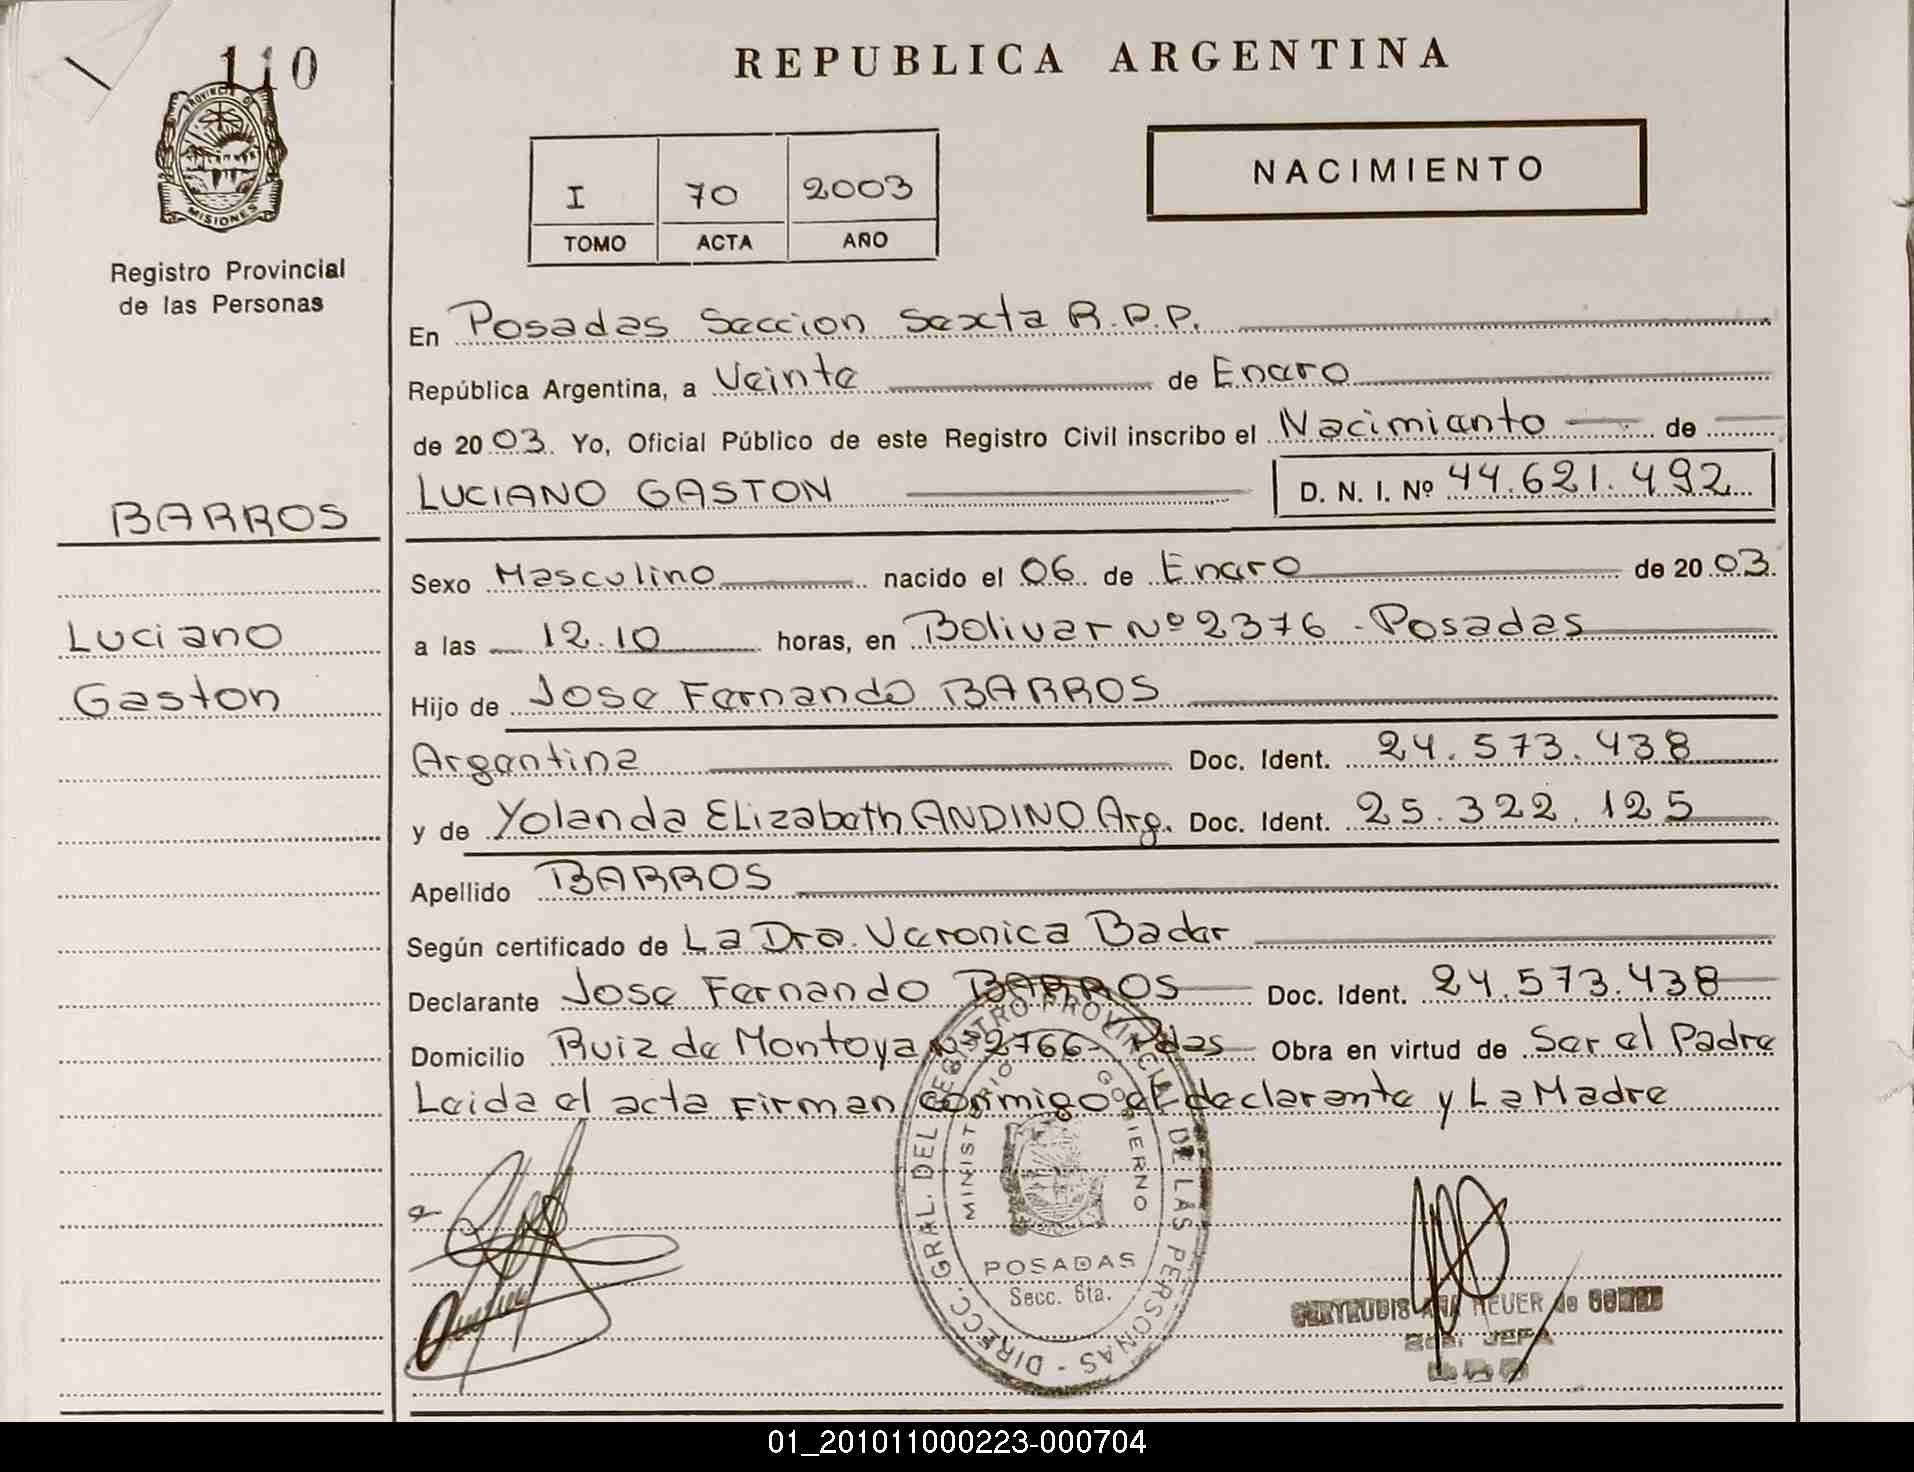 110
PROVINCIA DE
MISIONES
Registro Provincial
de las Personas
BARROS
Luciano
Gaston
REPUBLICA ARGENTINA
I 70 2003
TOMO ACTA AÑO
NACIMIENTO
En Posadas Seccion Sexta R.P.P.
República Argentina, a Veinte de Enero
de 2003. Yo, Oficial Público de este Registro Civil inscribo el Nacimiento de
LUCIANO GASTON D. N. I. Nº 44.621.492
Sexo Masculino nacido el 06 de Enero de 2003.
a las 12.10 horas, en Bolivar Nº 2376 - Posadas
Hijo de Jose Fernando BARROS
Argentina Doc. Ident. 24.573.438
y de Yolanda Elizabeth ANDINO Arg. Doc. Ident. 25.322.125
Apellido BARROS
Según certificado de La Dra. Veronica Bader
Declarante Jose Fernando BARROS Doc. Ident. 24.573.438
Domicilio Ruiz de Montoya Nº 2766 - Pdas Obra en virtud de Ser el Padre
Leida el acta Firman conmigo el declarante y La Madre
DIRECC. GRAL. DEL REGISTRO PROVINCIAL DE LAS PERSONAS -
MINISTERIO GOBIERNO
POSADAS
Secc. 6ta.
GERTRUDIS ANA de
JEFA
01_201011000223-000704